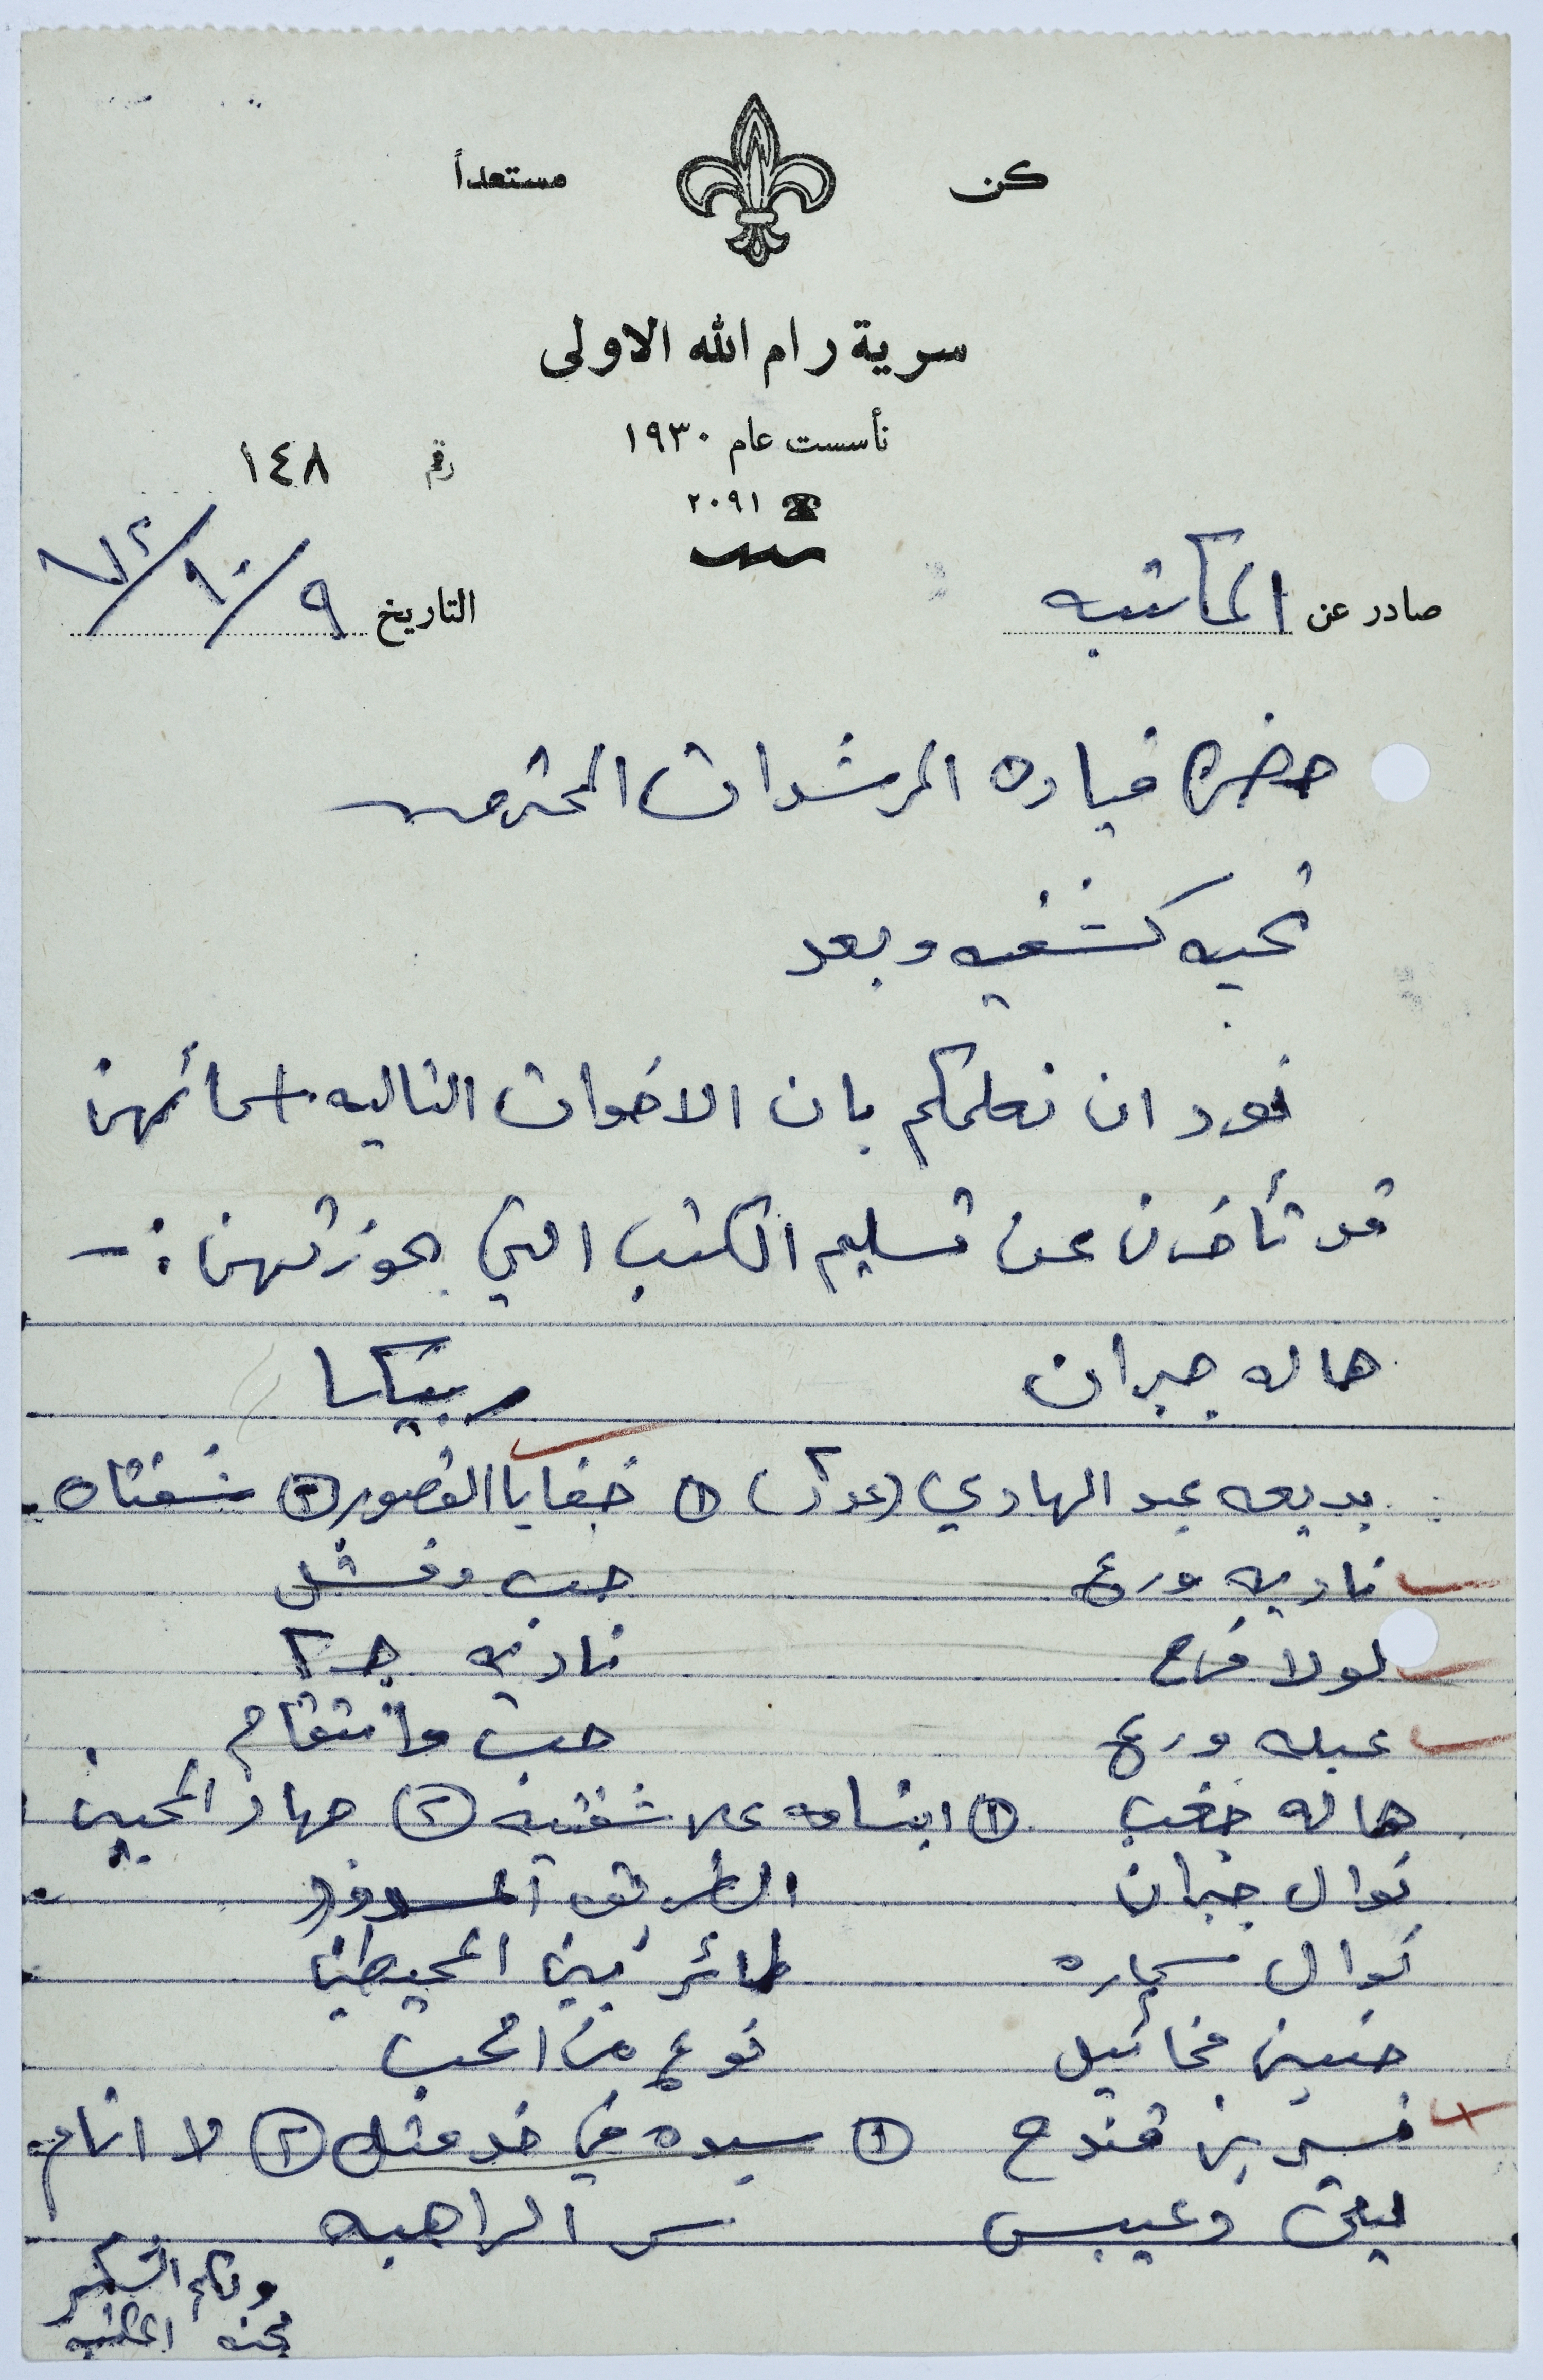 كن مستعداً
سرية رام الله الاولى
تأسست عام ١٩٣٠
رقم ١٤٨
☎ ٢٠٩١
صادر عن المكتبه
التاريخ ٩/١٠/٧٢
حضرة قيادة المرشدات المحترمين
تحيه كشفيه وبعد
نود ان نعلمكم بان الاخوات التاليه اسمائهن
قد تأخرن عن تسليم الكتب التي بحوزتهن :-
هاله جبران ربيكا
بديعه عبد الهادي (عدد ٢) ① خفايا القصور ② شفتاه
ناديه ورع حب وفشل
لولا فرح ناديه ج ٢
عبله ورع حب وانتقام
هاله خغب ① ابتسامه على شفتيه ② جهاد المحبين
نوال جبران الطريق المسدود
نوال سماره طائر بين المحيطين
حنين مخائيل نوع من الحب
نسرين قندح ① سيده في خدمتك ② لا انام
ليلى دعيبس سر الراهبه
ولكم الشكر
لجنه المكتبه